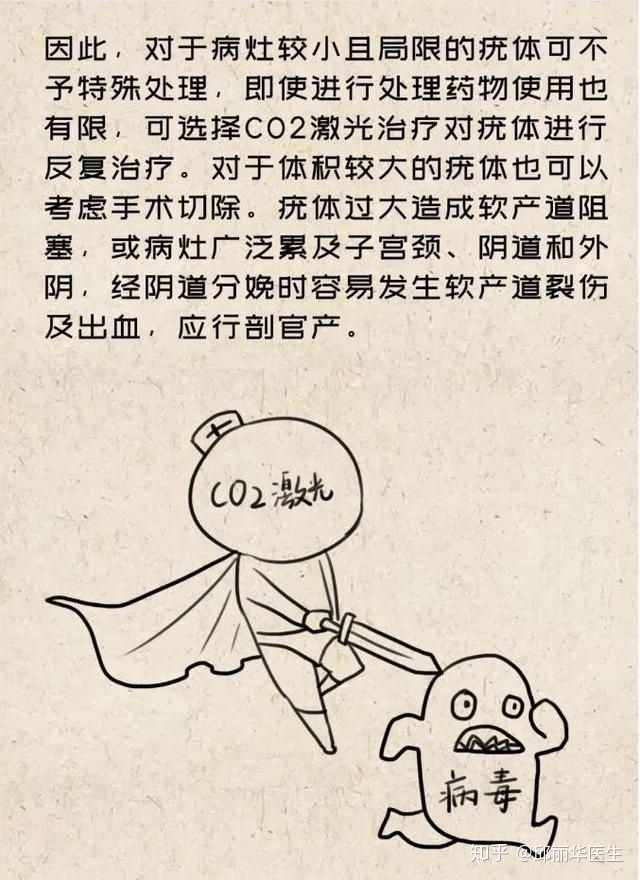 因此，对于病灶较小且局限的疣体可不
予特殊处理，即使进行处理药物使用也
有限，可选择CO2激光治疗对疣体进行
反复治疗。对于体积较大的疣体也可以
考虑手术切除。疣体过大造成软产道阻
塞，或病灶广泛累及子宫颈、阴道和外
阴，经阴道分娩时容易发生软产道裂伤
及出血，应行剖官产。
CO2激光
病毒
知乎 @邱丽华医生